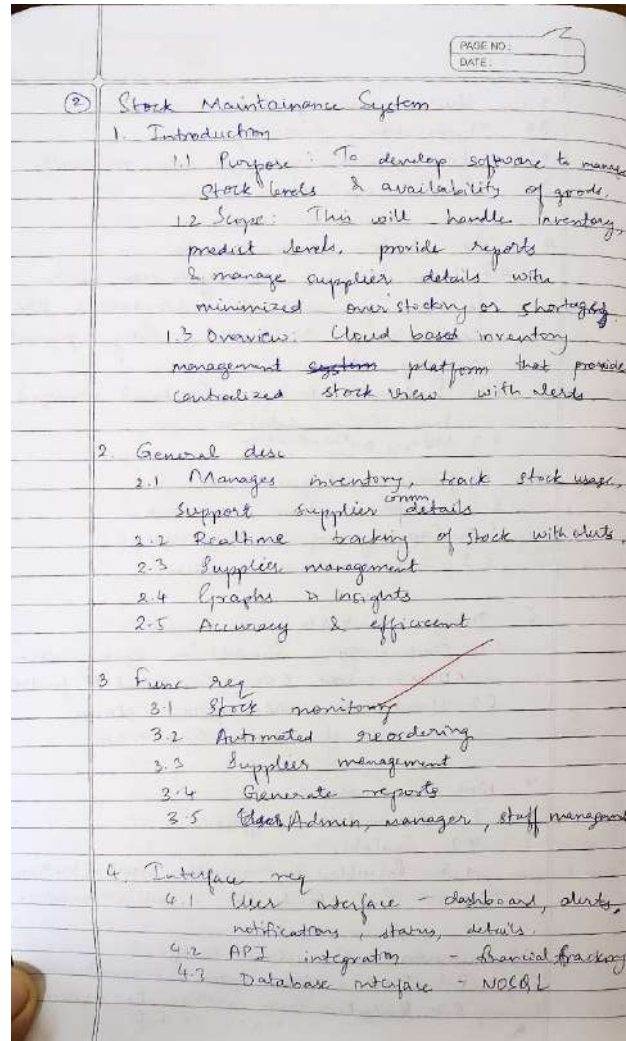 PAGE NO:
DATE:
2 Stock Maintainance System
1. Introduction
1.1 Purpose: To develop software to manage
stock levels & availability of goods.
1.2 Scope: This will handle inventory,
predict levels, provide reports
& manage supplier details with
minimized overstocking or shortages.
1.3 Overview: Cloud based inventory
management system platform that provide
centralized stock view with alerts
2. General disc
2.1 Manages inventory, track stock usage,
support supplier comm details
2.2 Realtime tracking of stock with alerts.
2.3 Supplier management
2.4 Graphs & Insights
2.5 Accuracy & efficient
3 Func req
3.1 Stock monitoring
3.2 Automated reordering
3.3 Supplier management
3.4 Generate reports
3.5 User Admin, manager, staff management
4. Interface req
4.1 User interface - dashboard, alerts,
notifications, status, details.
4.2 API integration - financial tracking
4.3 Database interface - NOSQL